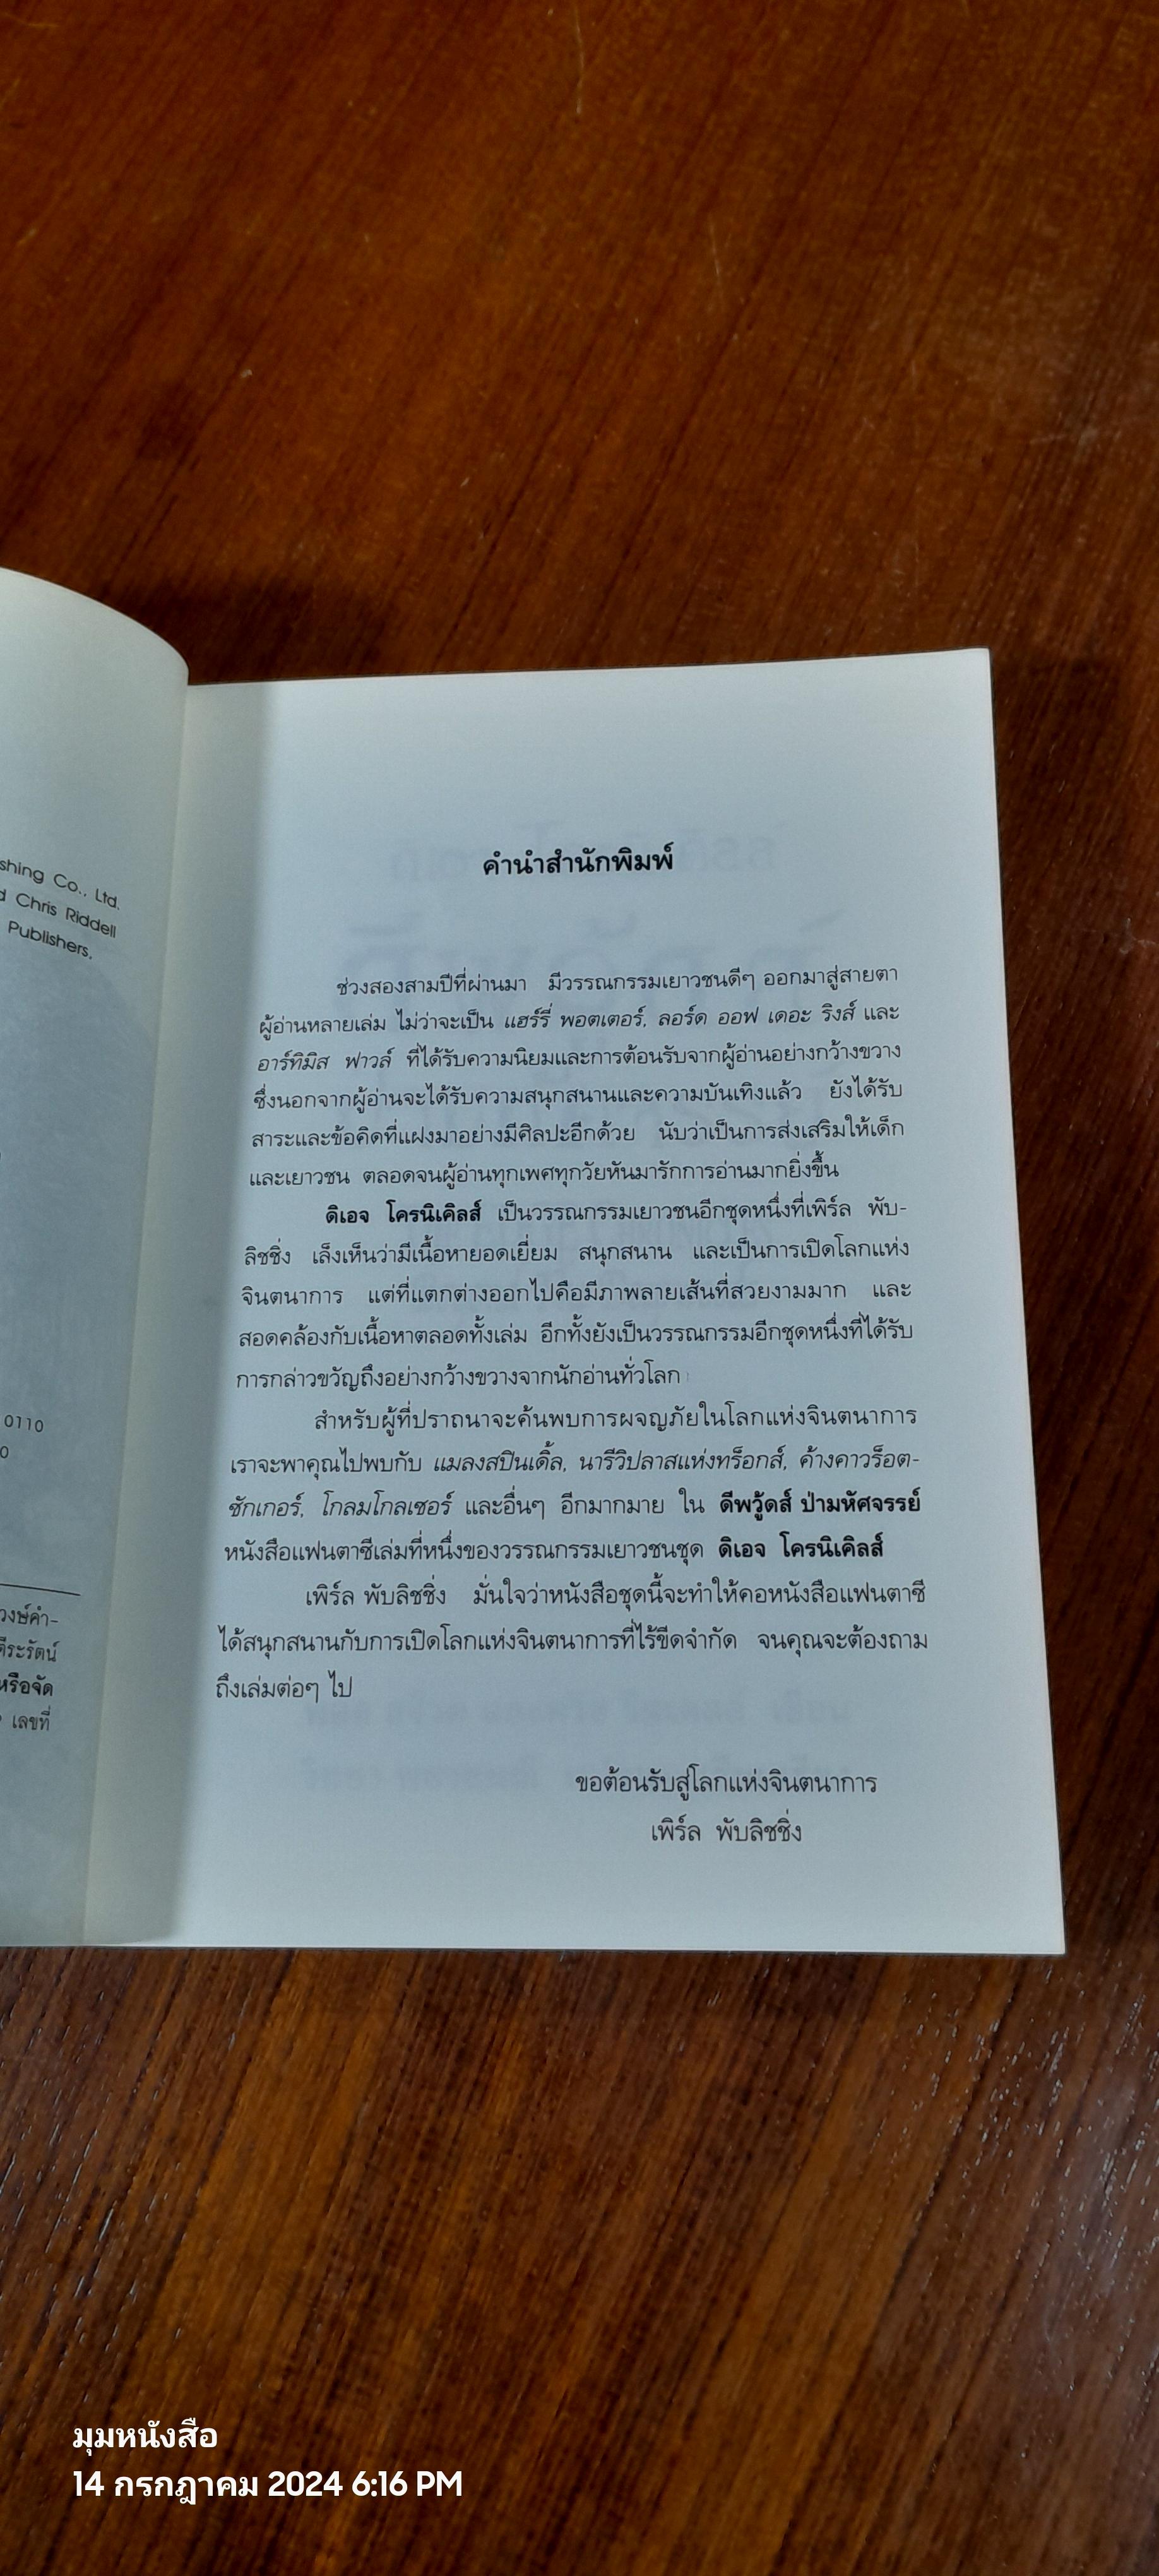 shing Co., Ltd.
d Chris Riddell
Publishers.
0110
0
วงษ์คำ-
ตีระรัตน์
หรือจัด
เลขที่
คำนำสำนักพิมพ์
ช่วงสองสามปีที่ผ่านมา มีวรรณกรรมเยาวชนดีๆ ออกมาสู่สายตา
ผู้อ่านหลายเล่ม ไม่ว่าจะเป็น แฮร์รี่ พอตเตอร์, ลอร์ด ออฟ เดอะ ริงส์ และ
อาร์ทิมิส ฟาวล์ ที่ได้รับความนิยมและการต้อนรับจากผู้อ่านอย่างกว้างขวาง
ซึ่งนอกจากผู้อ่านจะได้รับความสนุกสนานและความบันเทิงแล้ว ยังได้รับ
สาระและข้อคิดที่แฝงมาอย่างมีศิลปะอีกด้วย นับว่าเป็นการส่งเสริมให้เด็ก
และเยาวชน ตลอดจนผู้อ่านทุกเพศทุกวัยหันมารักการอ่านมากยิ่งขึ้น
ดิเอจ โครนิเคิลส์ เป็นวรรณกรรมเยาวชนอีกชุดหนึ่งที่เพิร์ล พับ-
ลิชชิ่ง เล็งเห็นว่ามีเนื้อหายอดเยี่ยม สนุกสนาน และเป็นการเปิดโลกแห่ง
จินตนาการ แต่ที่แตกต่างออกไปคือมีภาพลายเส้นที่สวยงามมาก และ
สอดคล้องกับเนื้อหาตลอดทั้งเล่ม อีกทั้งยังเป็นวรรณกรรมอีกชุดหนึ่งที่ได้รับ
การกล่าวขวัญถึงอย่างกว้างขวางจากนักอ่านทั่วโลก
สำหรับผู้ที่ปราถนาจะค้นพบการผจญภัยในโลกแห่งจินตนาการ
เราจะพาคุณไปพบกับ แมลงสปินเดิ้ล, นารีวิปลาสแห่งทร็อกส์, ค้างคาวร็อต-
ซักเกอร์, โกลมโกลเซอร์ และอื่นๆ อีกมากมาย ใน ดีพวู้ดส์ ป่ามหัศจรรย์
หนังสือแฟนตาซีเล่มที่หนึ่งของวรรณกรรมเยาวชนชุด ดิเอจ โครนิเคิลส์
เพิร์ล พับลิชชิ่ง มั่นใจว่าหนังสือชุดนี้จะทำให้คอหนังสือแฟนตาซี
ได้สนุกสนานกับการเปิดโลกแห่งจินตนาการที่ไร้ขีดจำกัด จนคุณจะต้องถาม
ถึงเล่มต่อๆ ไป
ขอต้อนรับสู่โลกแห่งจินตนาการ
เพิร์ล พับลิชชิ่ง
มุมหนังสือ
14 กรกฎาคม 2024 6:16 PM